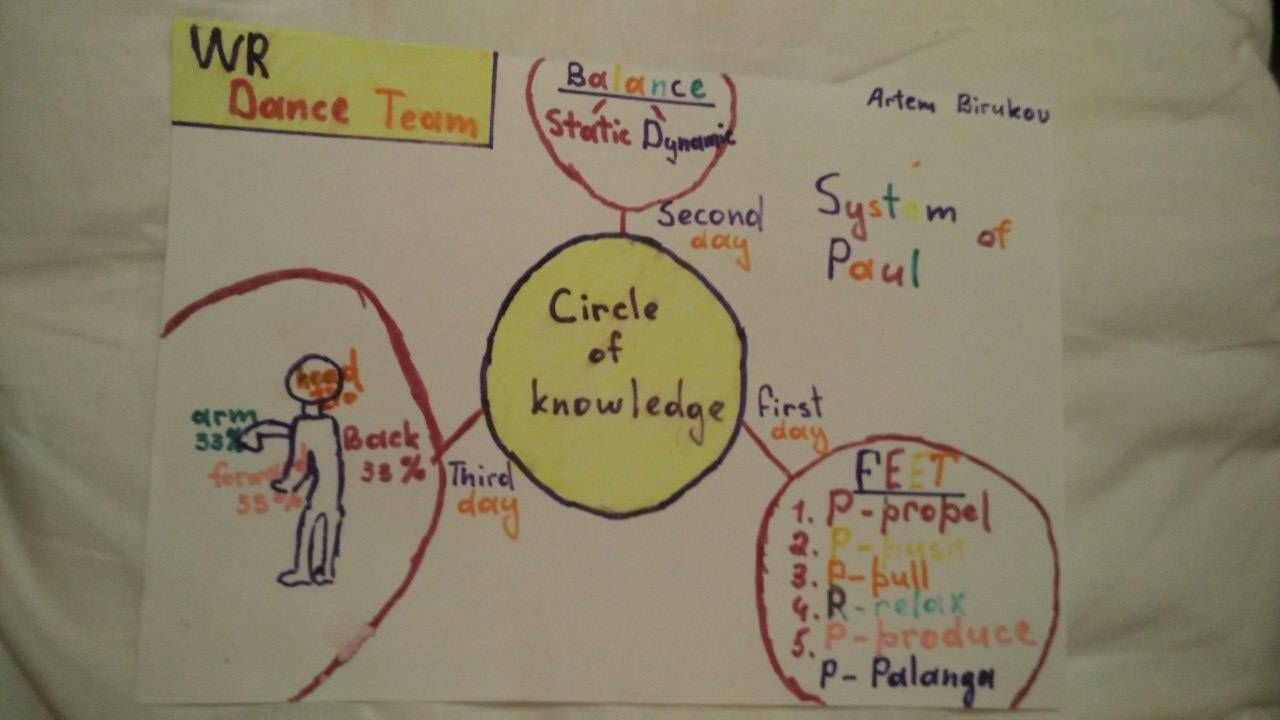 WR
Dance Team
Balance
Static Dynamic
Artem Birukov
System of
Paul
Second
day
Circle
of
knowledge
First
day
FEET
1. P-propel
2. P-push
3. P-pull
4. R-relax
5. P-produce
P- Palanga
Third
day
head
arm
33%
Back
33%
forward
33%